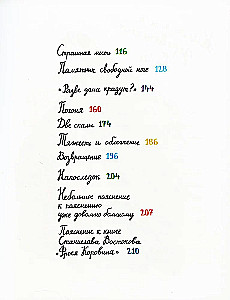 Страшная месть 116
Памятник свободной ноге 128
«Разве дома крадут?» 144
Погоня 160
Две скалы 174
Тяжесть и облегчение 186
Возвращение 196
Напоследок 204
Небольшое пояснение
к пояснению
уже довольно большому 207
Пояснение к книге
Станислава Востокова
«Фрося Коровина» 210